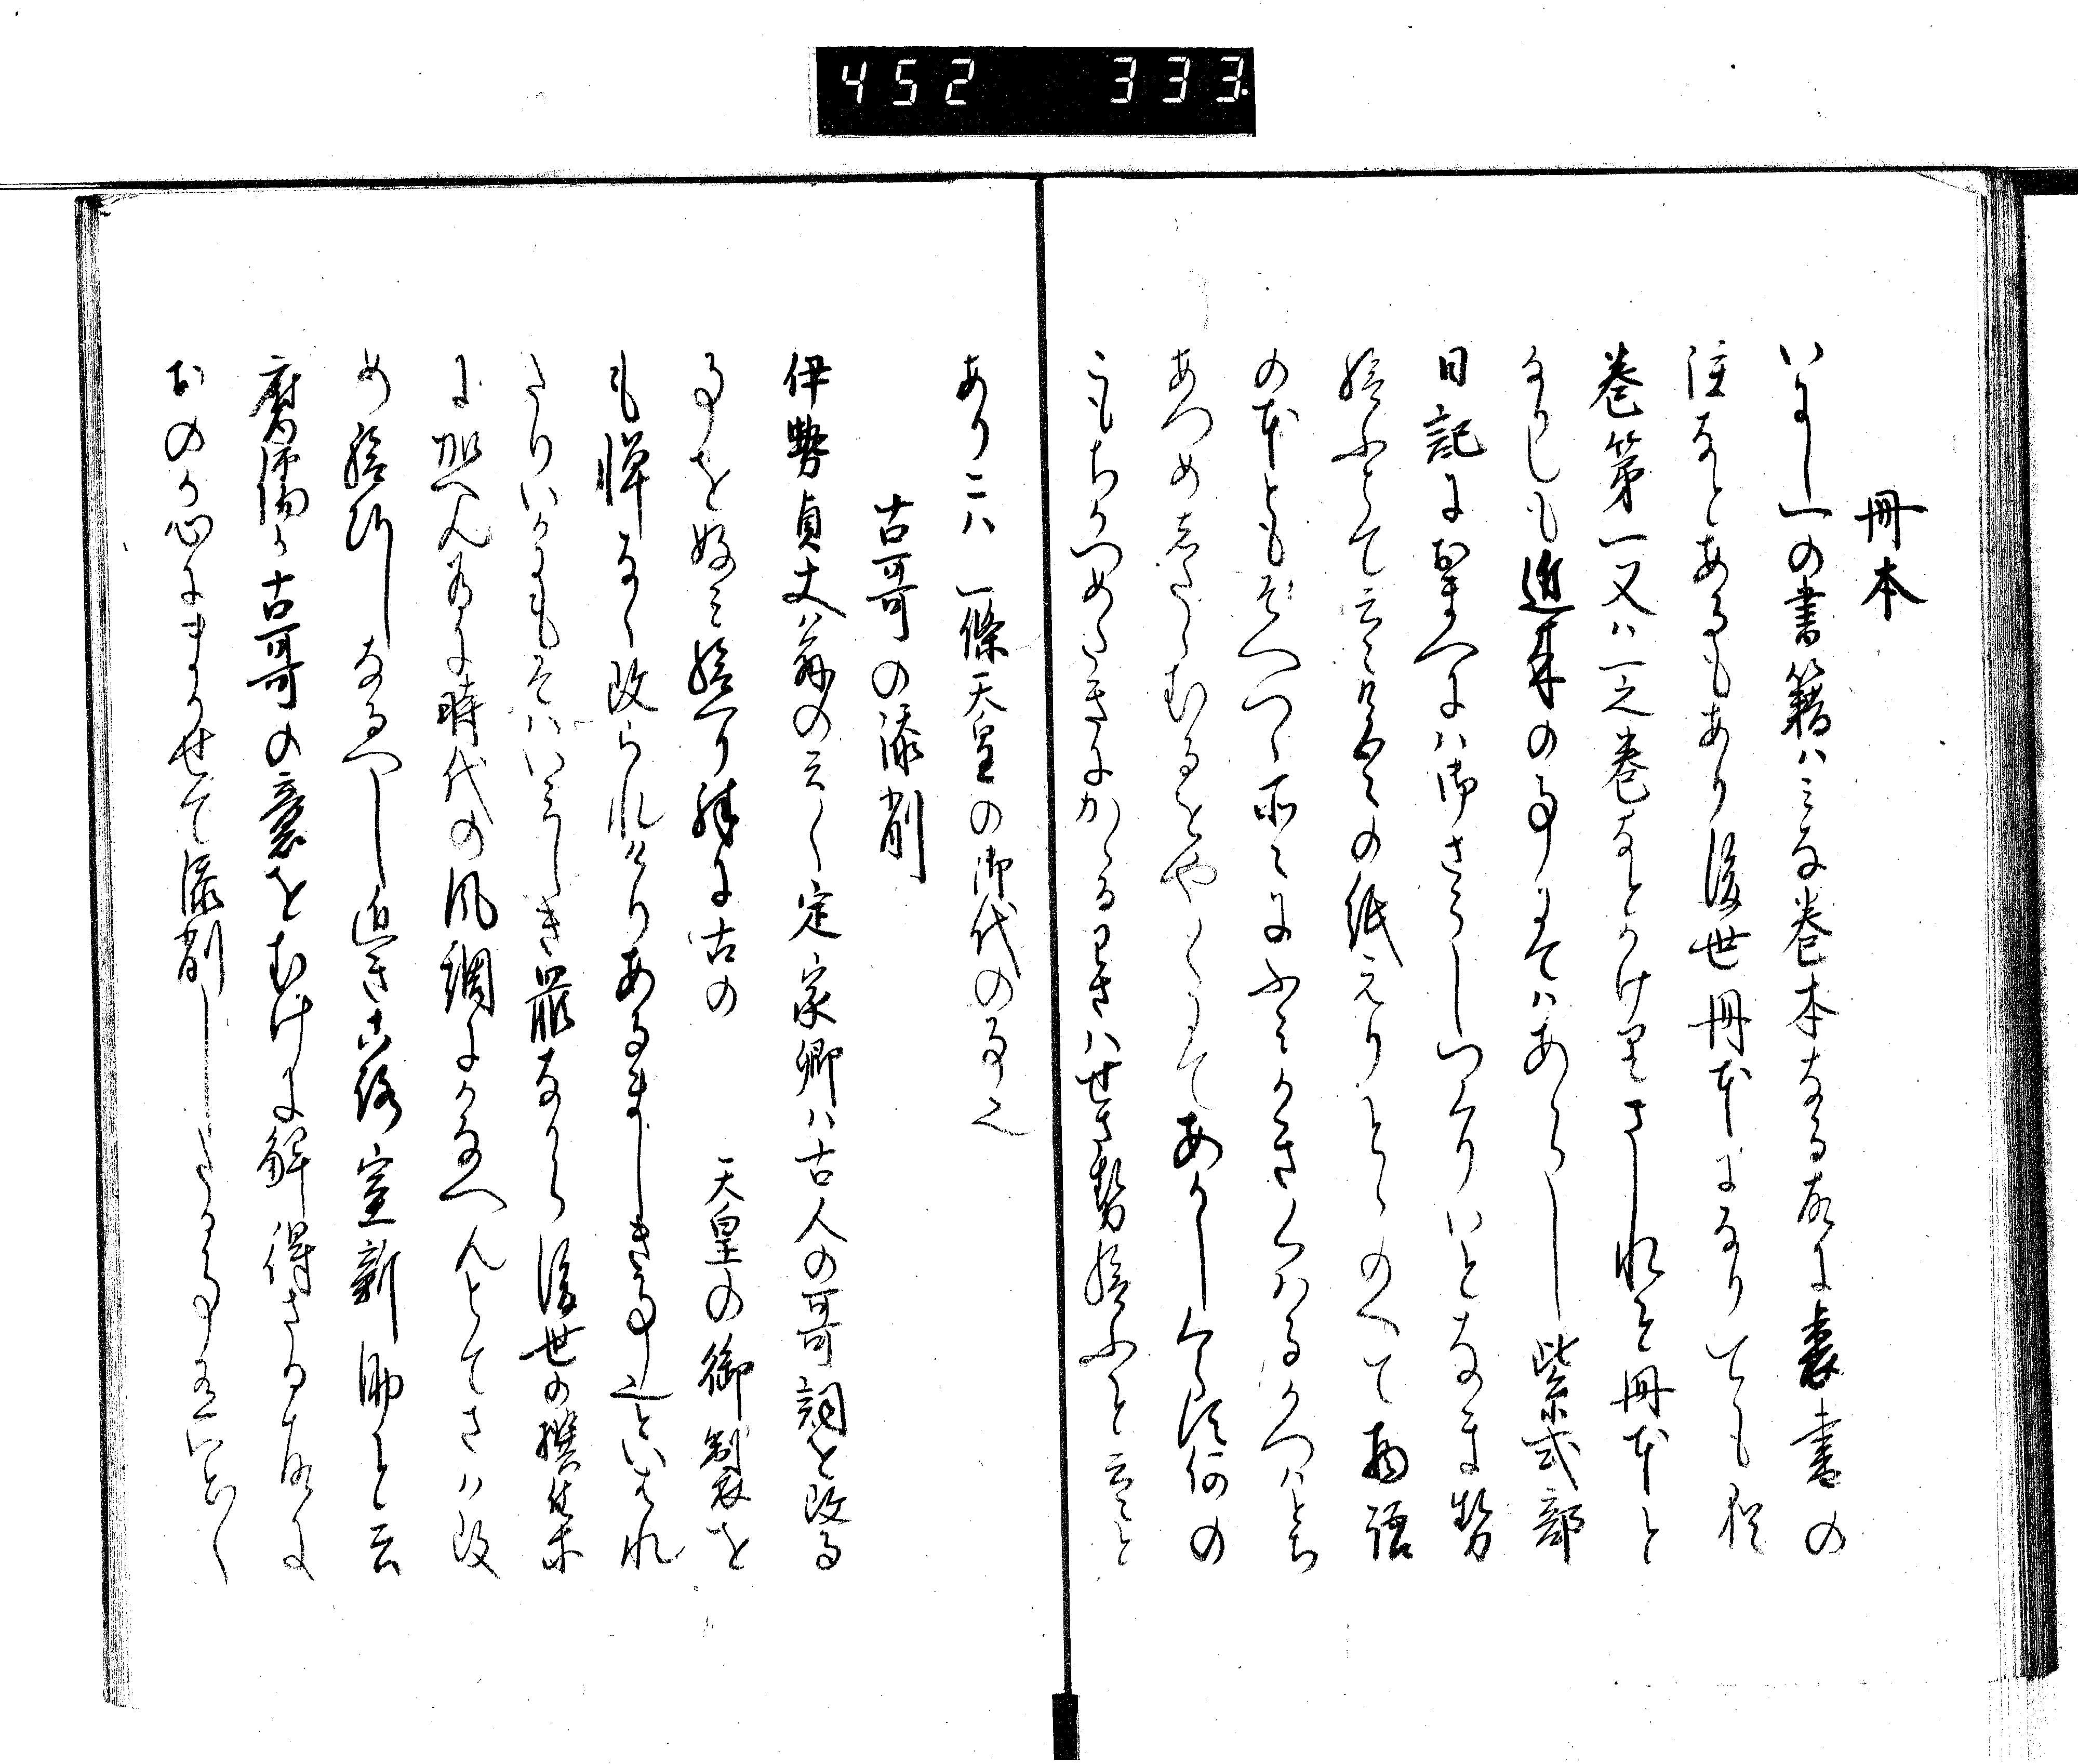 452 333
冊本
いにしへの書籍ハミな巻本なる故に裏書の
注なとあるもあり後世冊本になりても猶
巻第一又ハ一之巻なとかけりされと冊本と
なりしも近来の事にてハあらし紫式部
日記に御まへにハ御さうしつくりいとなませ
給ふとて云々色々の紙えりとゝのへて物語
の本ともそへつゝ所々にふみかきくハるかつハとち
あつめしたゝむるをやくにてあかしくらす何の
こもちかつめたきにかゝるわさハせさせ給ふと云々と
ありこハ一條天皇の御代の事也
古哥の添削
伊勢貞丈翁の云く定家卿ハ古人の哥詞を改る
事を好み給へり殊に古の　天皇の御製を
も憚なく改られけりあるましき事也といはれ
たりいかにもそハいみしき罪なから後世の撰集
に加へん為に時代の風調にかなへんとてさハ改
め給ひしなるへし近き比 室新助と云
腐儒か古哥の意をむけに解得さる故に
おのか心にまかせて添削したる事をいとく